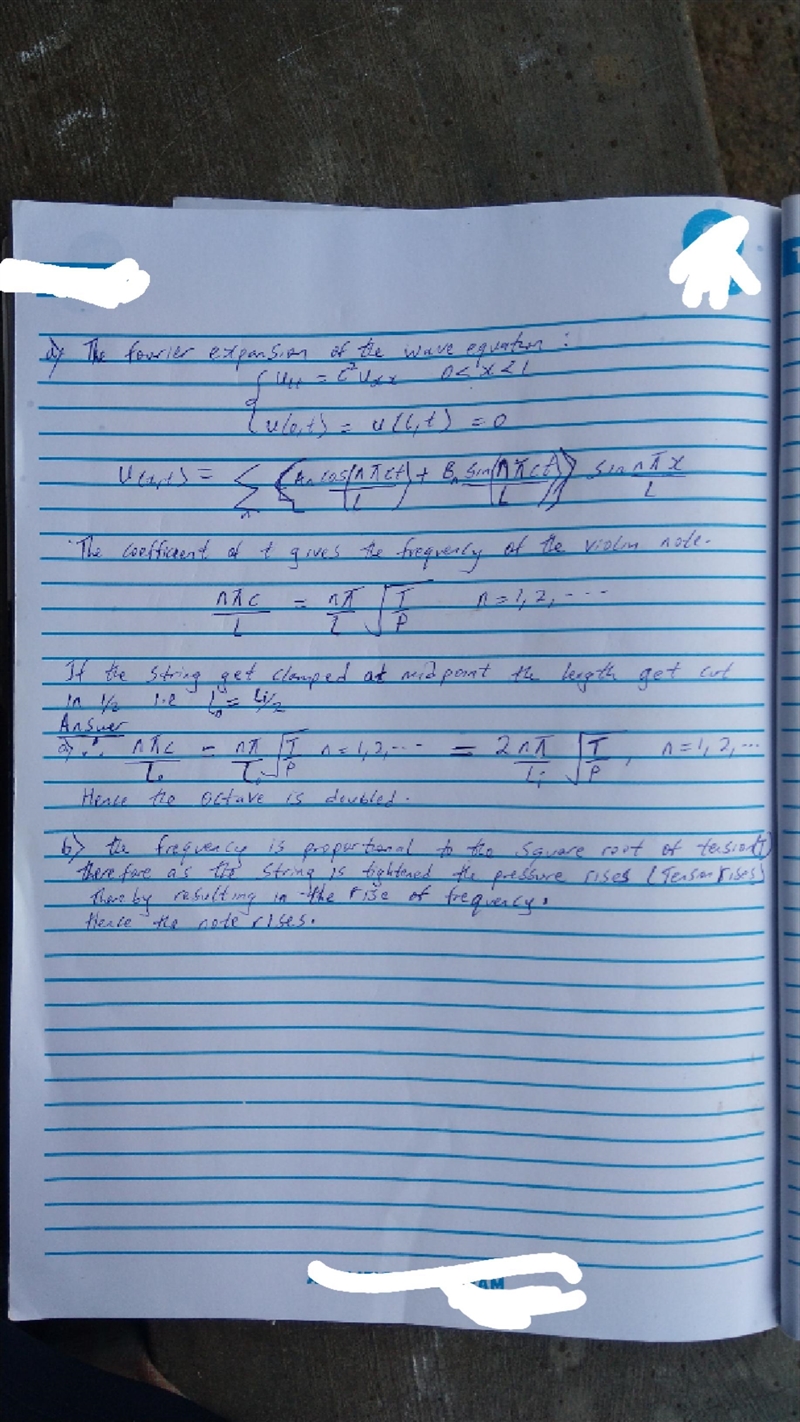 a) The fourier expansion of the wave equation :
{ Utt = C²Uxx 0<x<l
U(0,t) = U(l,t) = 0
U(x,t) = Σn {An cos(nπct/L) + Bn sin(nπct/L)} sin nπx/L
The coefficient of t gives the frequency of the violin note.
nπc/L = nπ/L √T/P n=1,2,---
If the string get clamped at midpoint the length get cut
in 1/2 i.e L₀ = Li/2
Answer
a) ∴ nπc/L₀ = nπ/L₀ √T/P n=1,2,--- = 2nπ/Li √T/P, n=1,2,---
Hence the octave is doubled.
b) the frequency is proportional to the square root of tension(T)
therefore as the string is tightened the pressure rises (Tension rises)
thereby resulting in the rise of frequency.
Hence the note rises.
AM